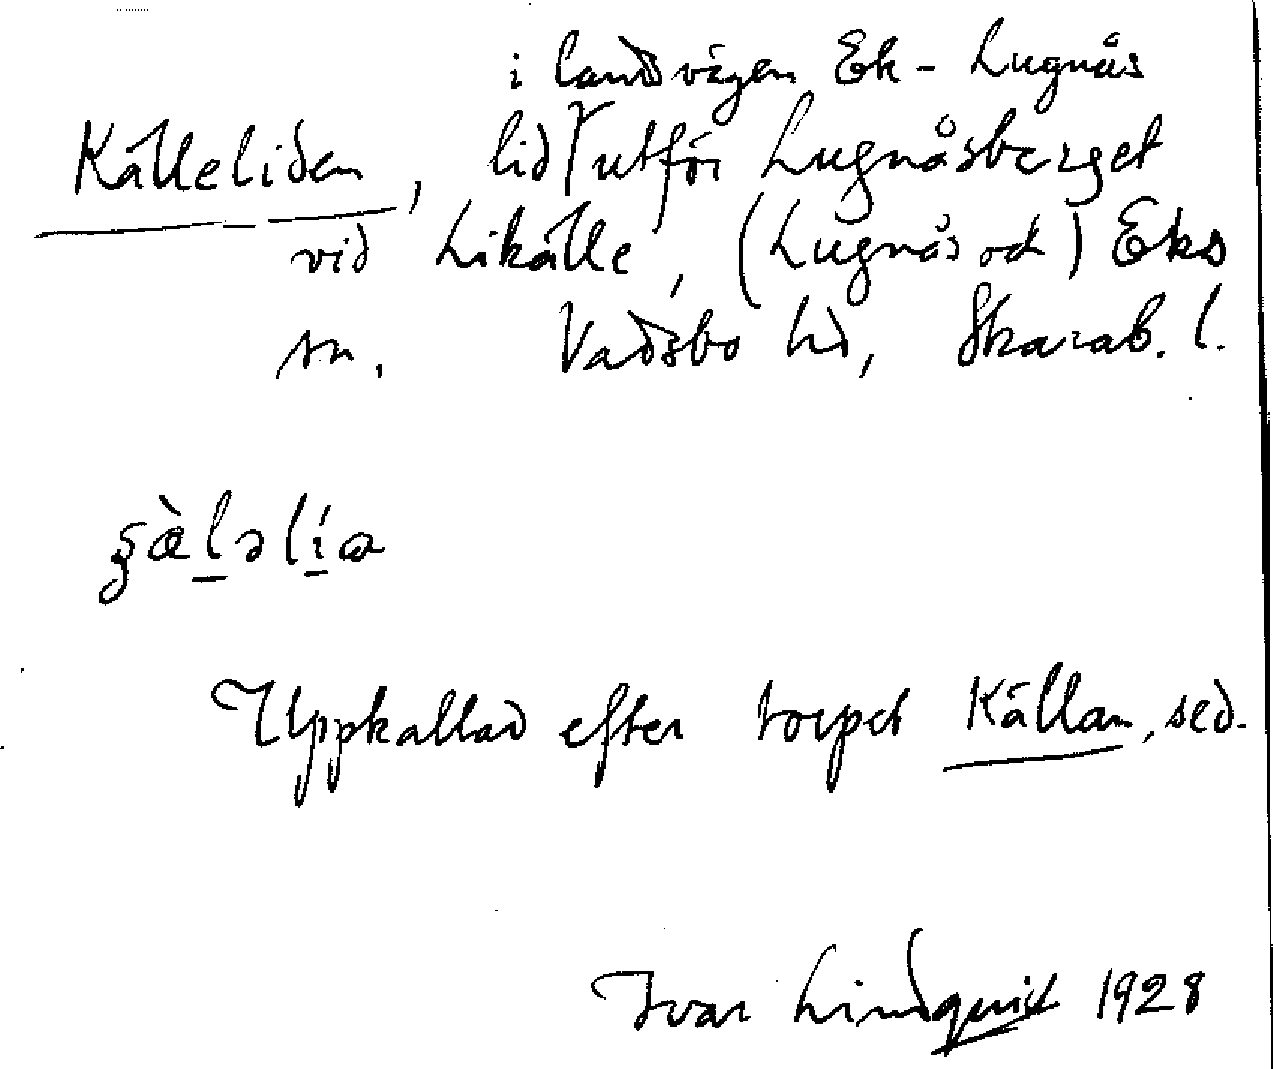 i landsvägen Ek - Lugnås
Källeliden, lid utför Lugnåsberget
vid Likälle, (Lugnås och) Eks
sn. Vadsbo hd, Skarab. l.
ʂæ̀ləlía
Uppkallad efter torpet Källan, sed.
Ivar Lindquist 1928